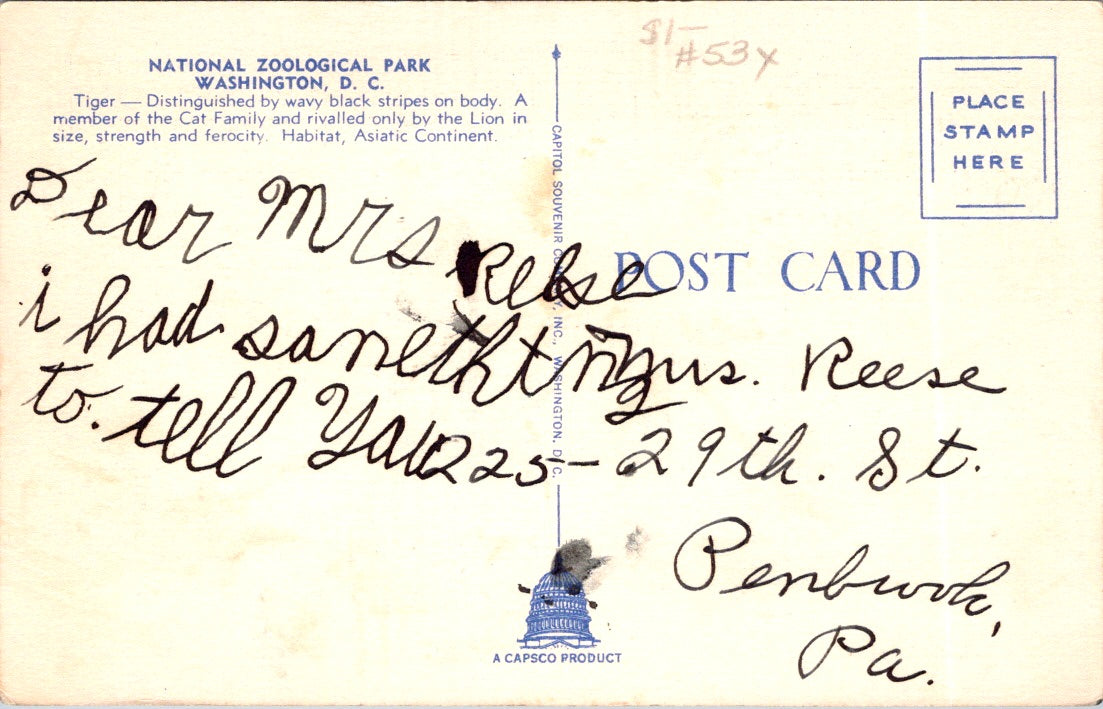 $1—
#53x
NATIONAL ZOOLOGICAL PARK
WASHINGTON, D. C.
Tiger — Distinguished by wavy black stripes on body. A
member of the Cat Family and rivalled only by the Lion in
size, strength and ferocity. Habitat, Asiatic Continent.
PLACE
STAMP
HERE
CAPITOL SOUVENIR COMPANY, INC., WASHINGTON, D.C.
POST CARD
Dear Mrs Reese
i had
to. tell You
Reese
225 – 29th. St.
Penbrook,
Pa.
A CAPSCO PRODUCT